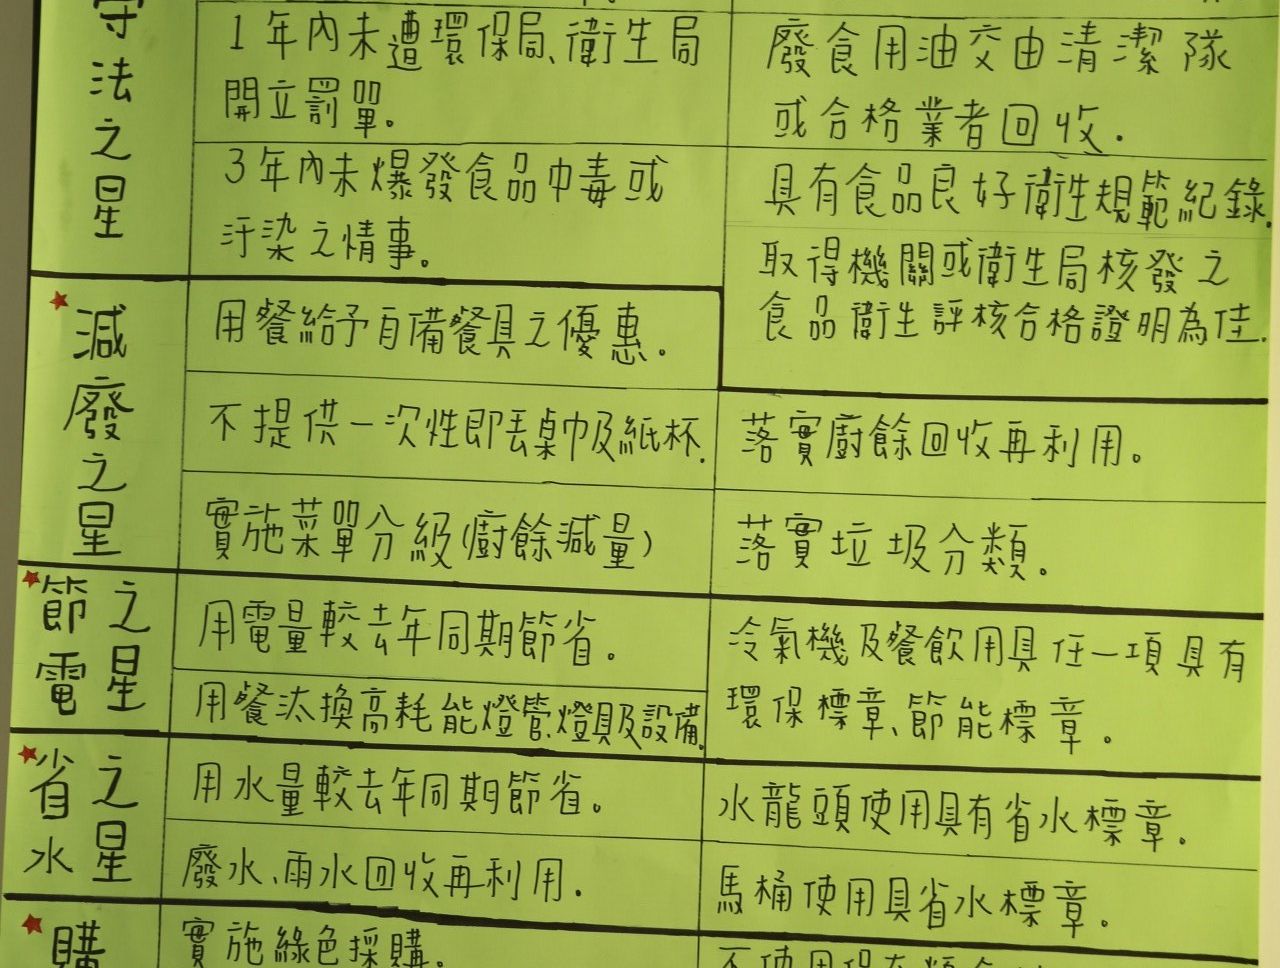 守法之星
1年內未遭環保局、衛生局
開立罰單。
廢食用油交由清潔隊
或合格業者回收.
3年內未爆發食品中毒或
汙染之情事。
具有食品良好衛生規範紀錄.
取得機關或衛生局核發之
食品衛生評核合格證明為佳.
減廢之星
用餐給予自備餐具之優惠。
不提供一次性即丟桌巾及紙杯.
落實廚餘回收再利用。
實施菜單分級(廚餘減量)
落實垃圾分類。
節電之星
用電量較去年同期節省。
冷氣機及餐飲用具任一項具有
環保標章、節能標章。
用餐汰換高耗能燈管、燈具及設備.
省水之星
用水量較去年同期節省。
水龍頭使用具有省水標章.
廢水、雨水回收再利用.
馬桶使用具省水標章。
購
實施綠色採購.